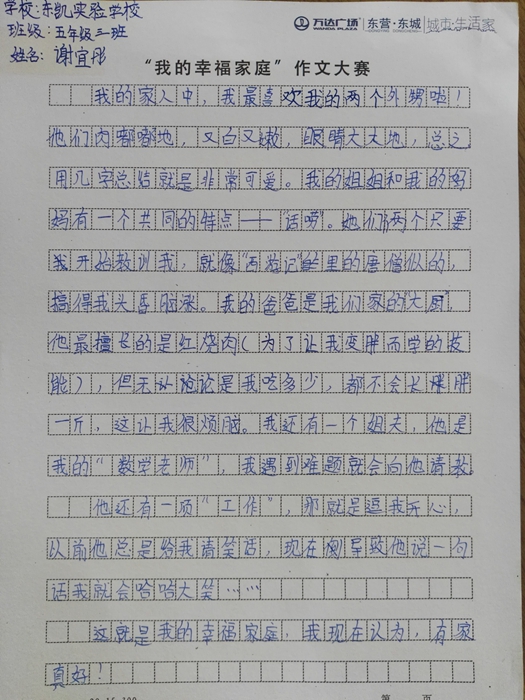 学校:东凯实验学校
班级:五年级三班
姓名:谢宜彤
万达广场 东营·东城 城市·生活家
WANDA PLAZA
“我的幸福家庭”作文大赛
我的家人中,我最喜欢我的两个外甥啦!
他们肉嘟嘟地,又白又嫩,眼睛大大地,总之
用几字总结就是非常可爱。我的姐姐和我的妈
妈有一个共同的特点——“话唠”。她们两个只要
我开始教训我,就像“西游记”里的唐僧似的,
搞得我头昏脑涨。我的爸爸是我们家的“大厨”,
他最擅长的是红烧肉(为了让我变胖而学的技
能),但无论是我吃多少,都不会长胖
一斤,这让我很烦脑。我还有一个姐夫,他是
我的“数学老师”,我遇到难题就会向他请教
他还有一项“工作”,那就是逗我开心,
以前他总是给我请笑话,现在导致他说一句
话我就会哈哈大笑……
这就是我的幸福家庭,我现在认为,有家
真好!
第 页